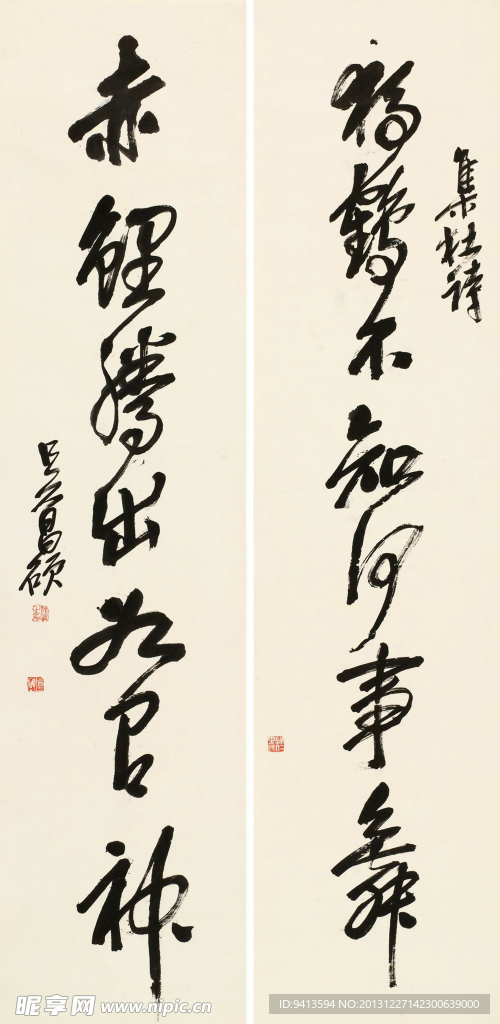 集杜诗
独鹤不知何事舞
赤鲤腾出如有神
吴昌硕
昵享网 www.nipic.cn
ID:9413594 NO:20131227142300639000